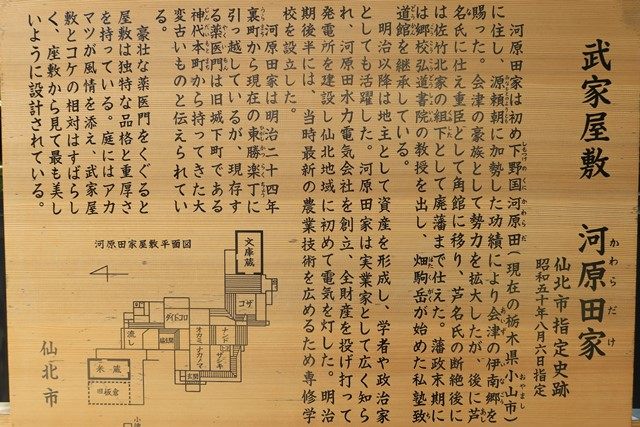 武家屋敷 河原田家
かわらだけ
仙北市指定史跡
昭和五十年八月六日指定
河原田家は初め下野国河原田(現在の栃木県小山市)
しもつけのくに かわらだ おやまし
に住し、源頼朝に加勢した功績により会津の伊南郷を
賜った。会津の豪族として勢力を拡大したが、後に芦
名氏に仕え重臣として角館に移り、芦名氏の断絶後に
は佐竹北家の組下として廃藩まで仕えた。藩政末期に
は郷校弘道書院の教授を出し、畑駒岳が始めた私塾致
道館を継承している。
明治以降は地主として資産を形成し、学者や政治家
としても活躍した。河原田家は実業家として広く知ら
れ、河原田水力電気会社を創立、全財産を投げ打って
発電所を建設し仙北地域に初めて電気を灯した。明治
期後半には、当時最新の農業技術を広めるため専修学
校を設立した。
河原田家は明治二十四年
裏町から現在の東勝楽丁に
引っ越しているが、現存す
る薬医門は旧城下町である
神代本町から持ってきた大
変古いものと伝えられてい
る。
豪壮な薬医門をくぐると
屋敷は独特な品格と重厚さ
を持っている。庭にはアカ
マツが風情を添え、武家屋
敷とコケの相対はすばらし
く、座敷から見て最も美し
いように設計されている。
河原田家屋敷平面図
文庫蔵
コザ
ダイドコロ
ナンド
オカミ
ナカノマ
ザシキ
流し
玄関
米蔵
旧板倉
仙北市